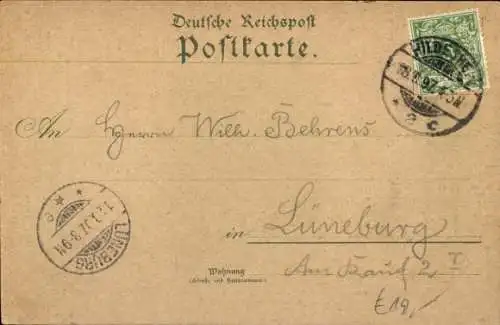 Deutsche Reichspost
Postkarte.
HILDESHEIM
* a c
An Herrn Wilh. Behrens
LÜNEBURG
in Lüneburg
Wohnung
(Straße und Hausnummer)
Am Sand 2 I
£19,-